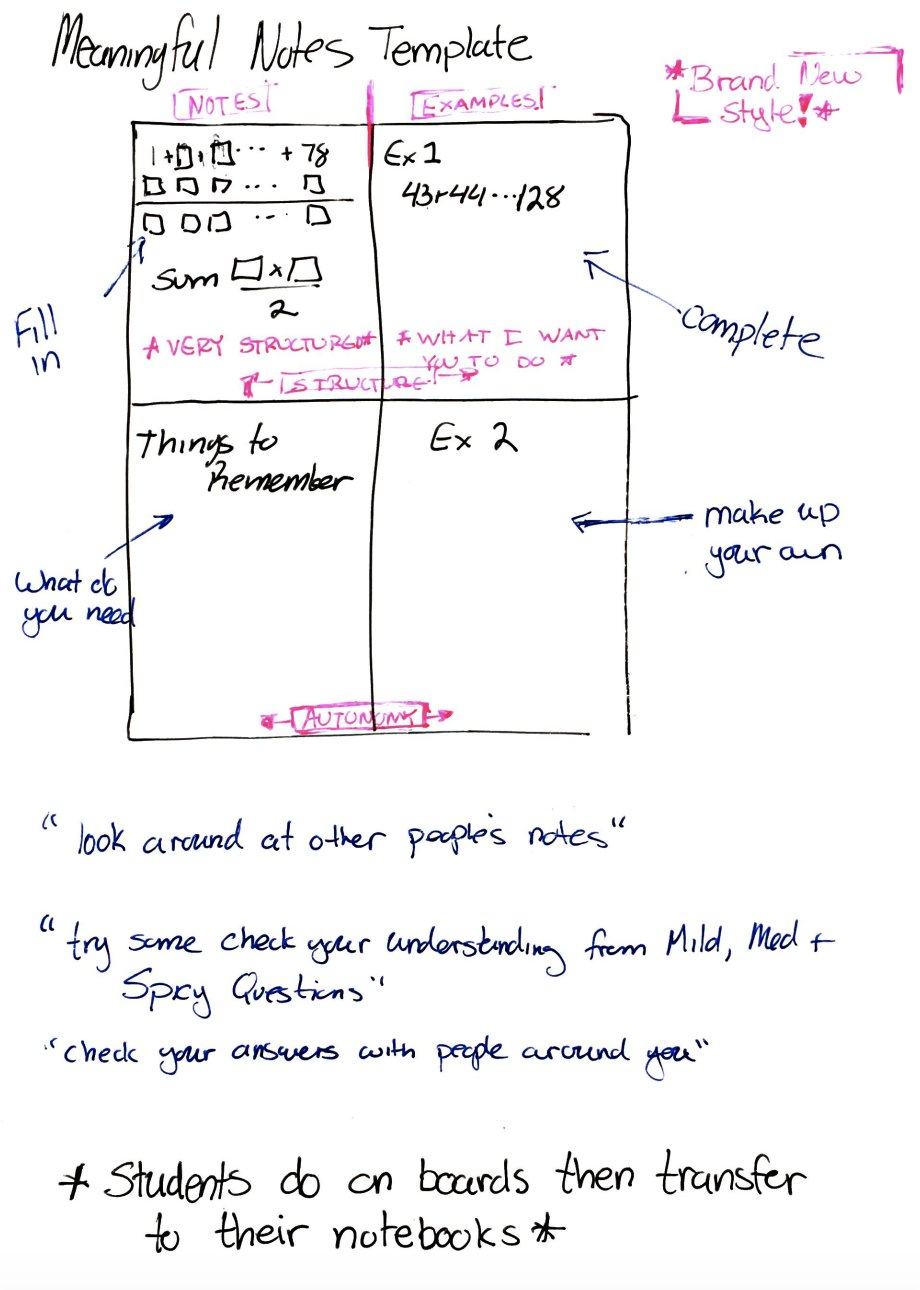 Meaningful Notes Template
*Brand New
Style!*
NOTES
EXAMPLES!
1+□+□... + 78
□ □ □ ... □
□ □ □ ... □
Sum □×□
2
*VERY STRUCTURED*
Ex 1
43+44...128
*WHAT I WANT
YOU TO DO*
STRUCTURE
Fill
in
complete
Things to
Remember
Ex 2
What do
you need
make up
your own
AUTONOMY
"look around at other people's notes"
"try some check your understanding from Mild, Med +
Spicy Questions"
"check your answers with people around you"
* Students do on boards then transfer
to their notebooks *